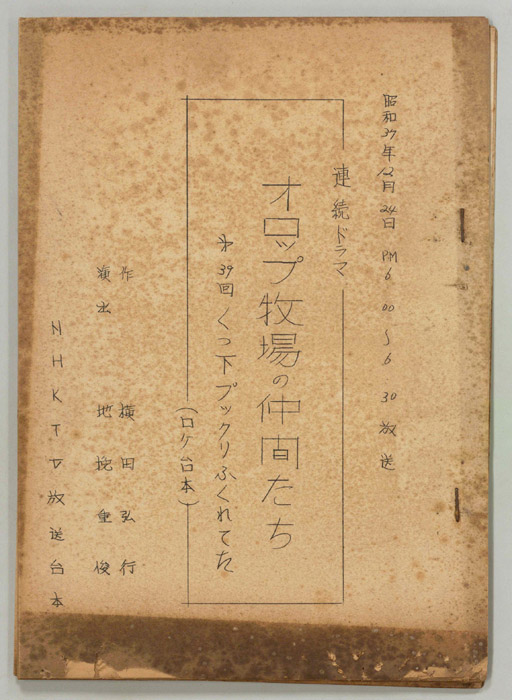 昭和37年12月24日 PM6.00〜6.30放送
連続ドラマ
オロップ牧場の仲間たち
第39回 くつ下プックリふくれてた
(ロケ台本)
作 横田弘行
演出 地挽重俊
NHKTV放送台本